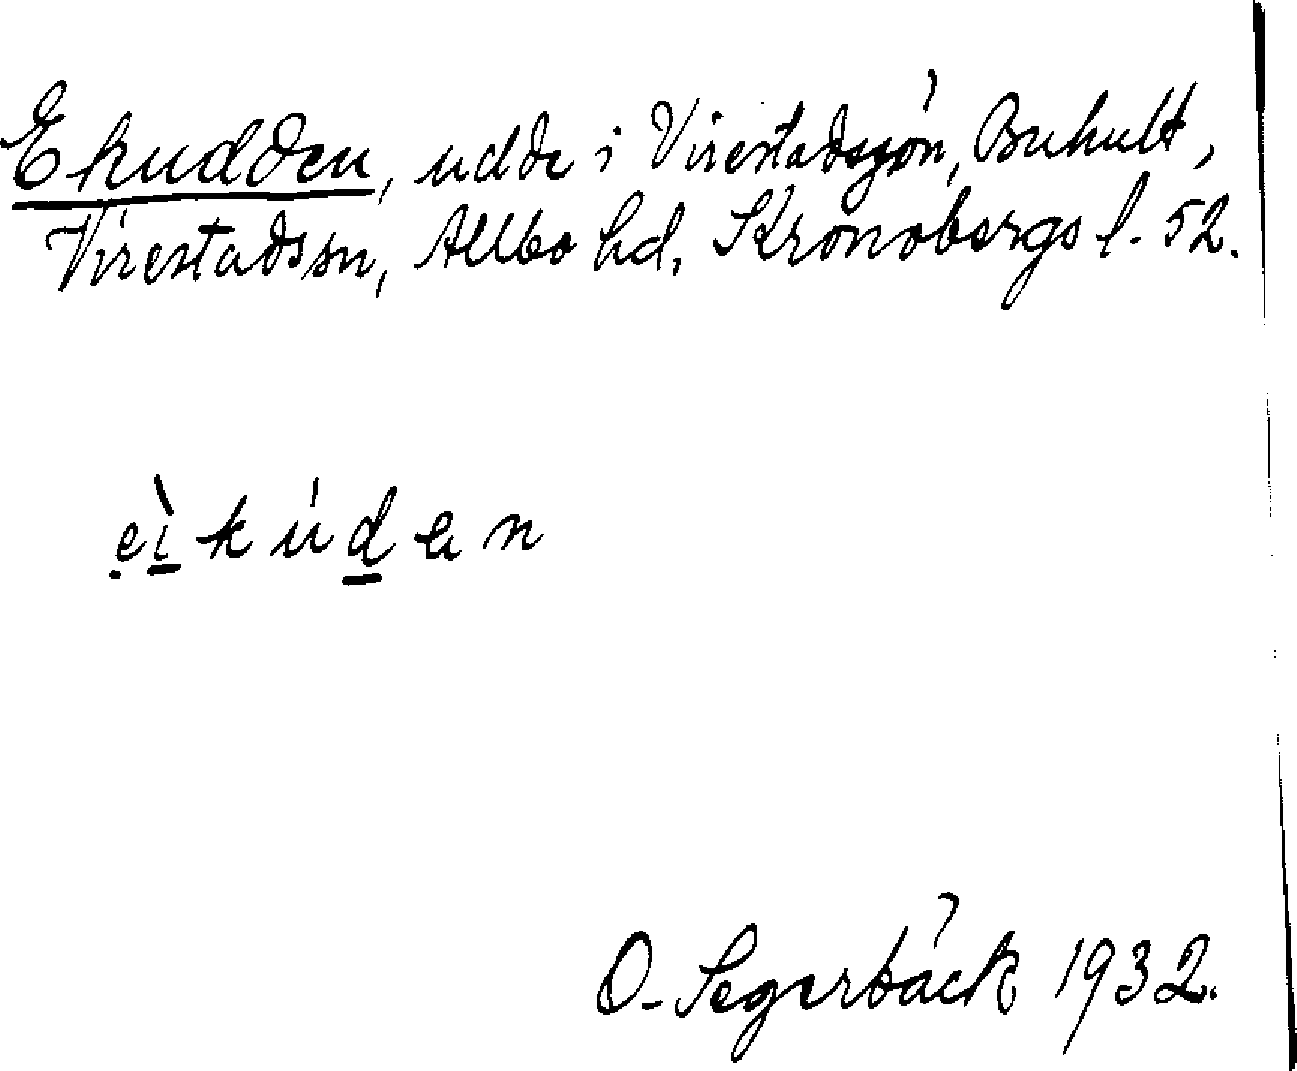 Ekudden, udde i Virestadsjön, Buhult,
Virestads sn, Allbo hd, Kronobergs l. 52.
ẹì̠kúd̠en
O. Segerbäck 1932.